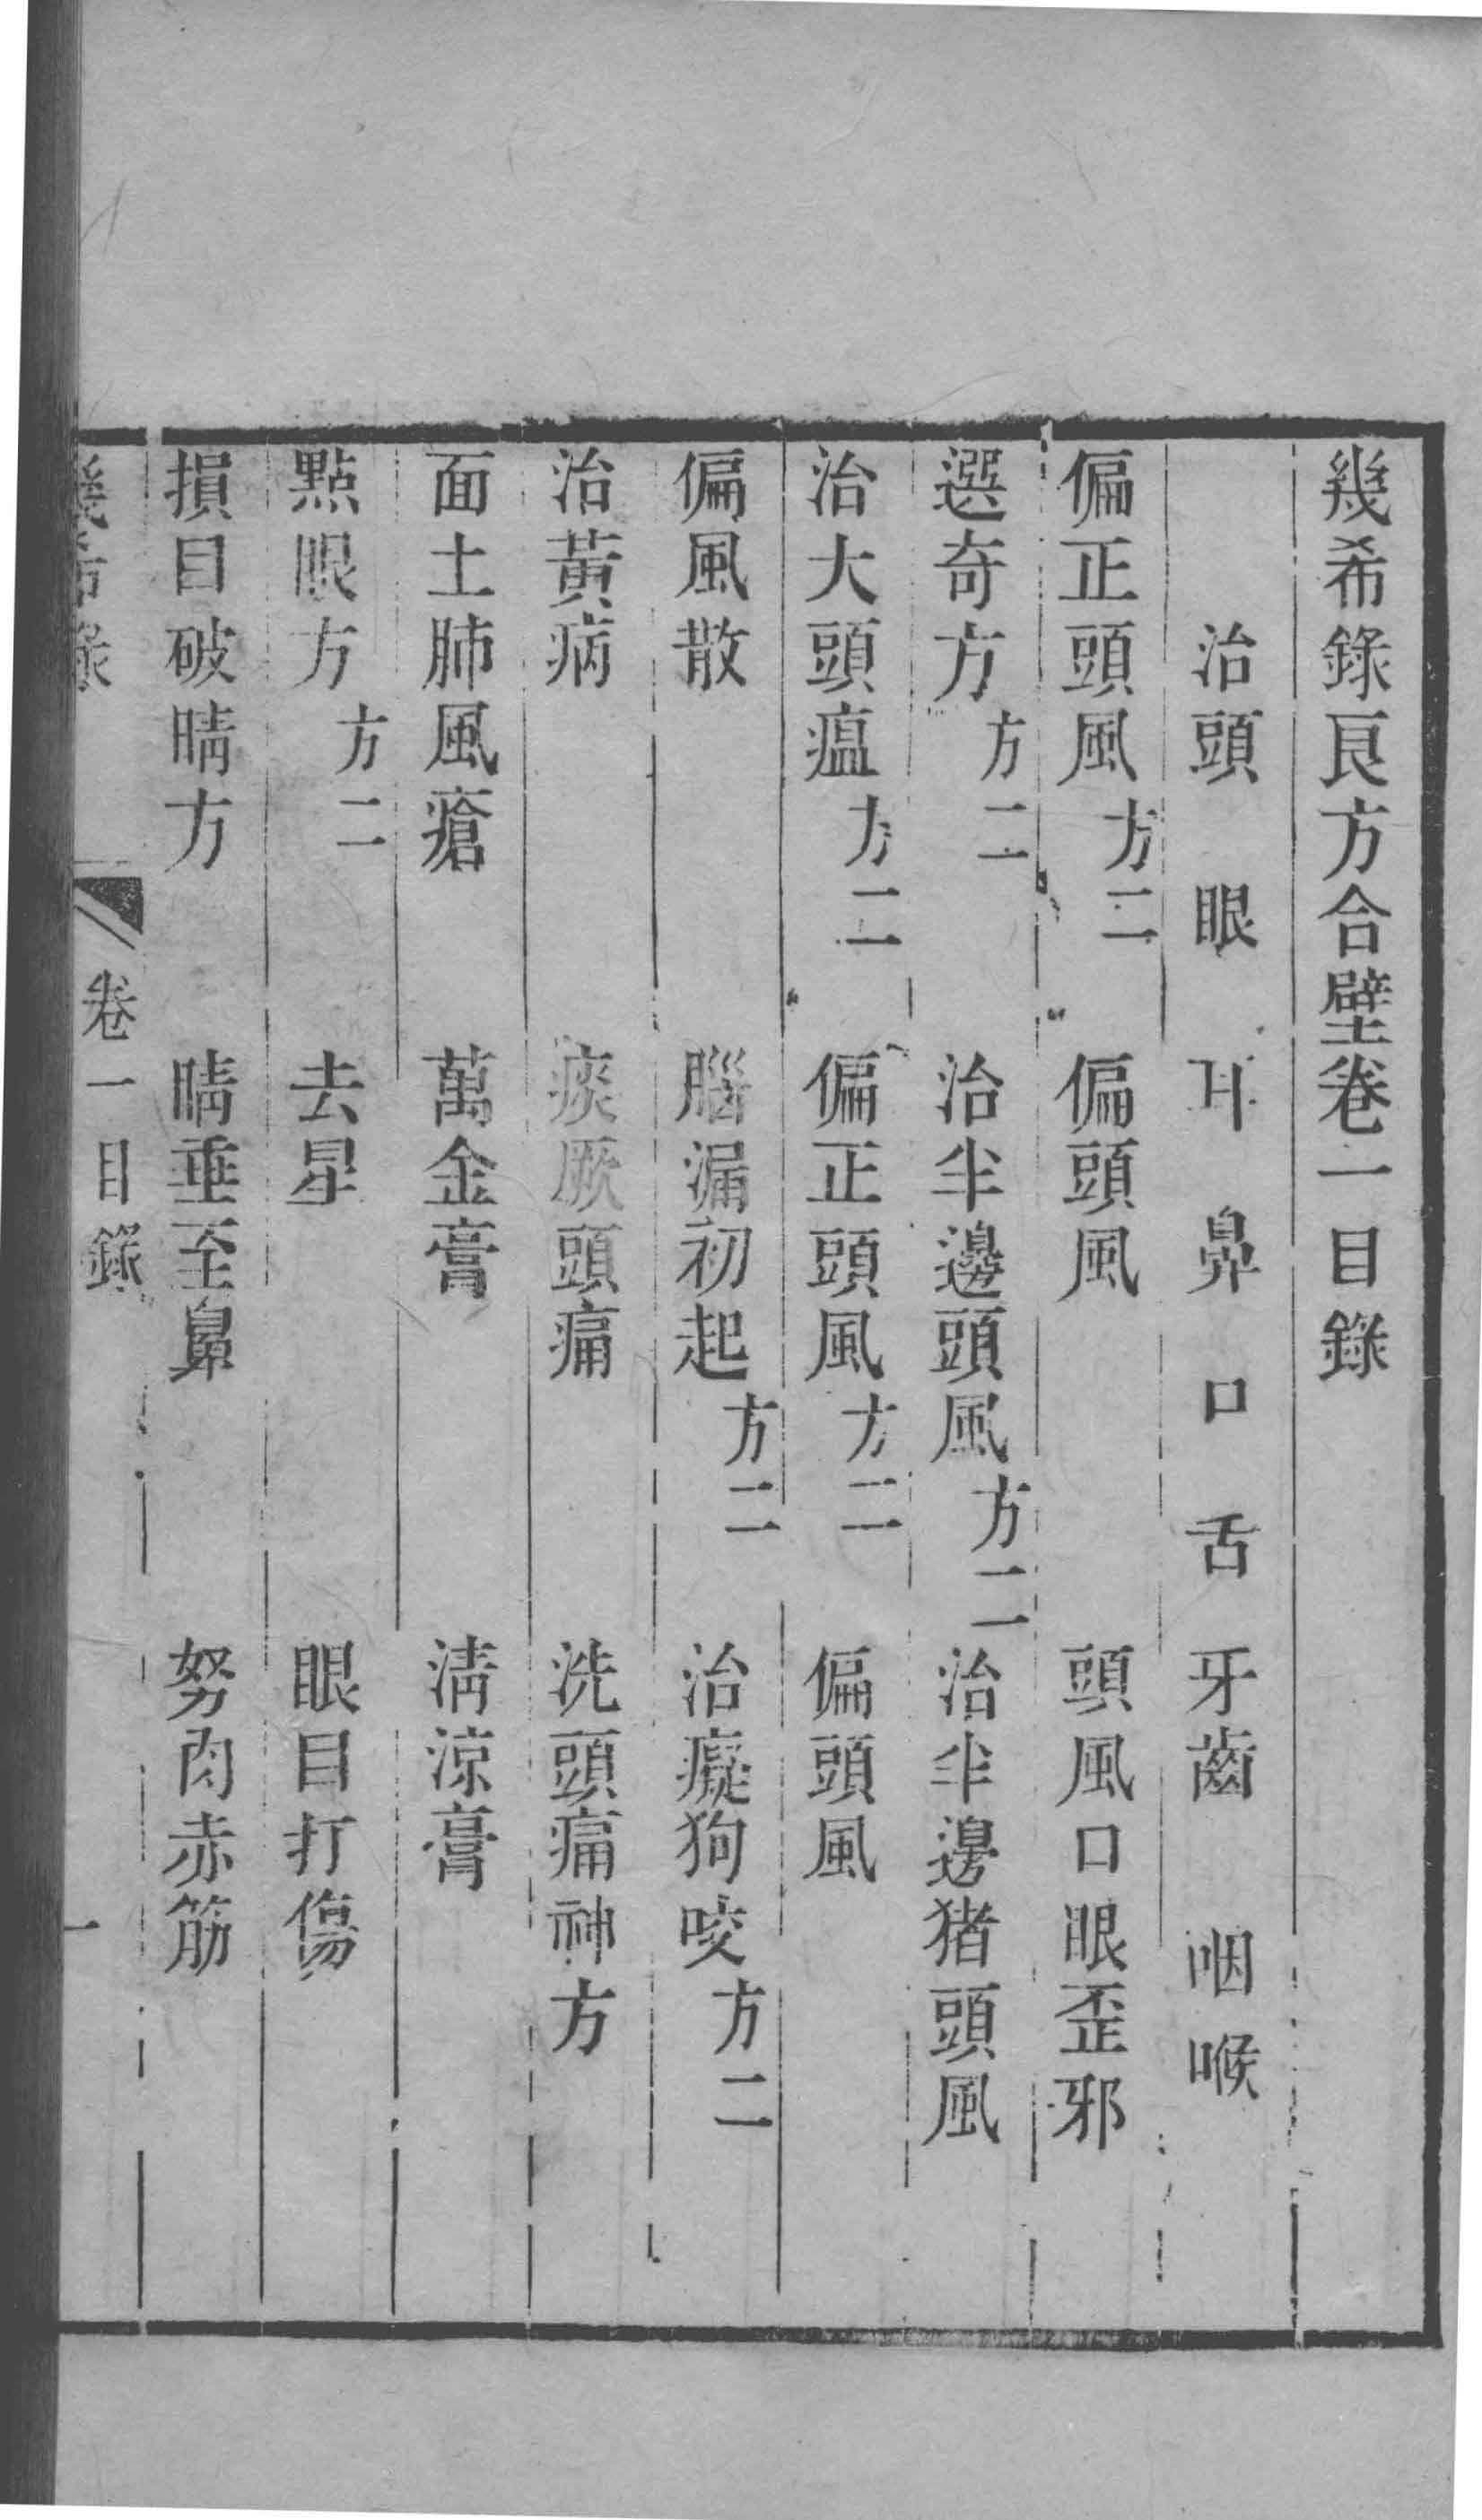 幾希錄良方合璧卷一目錄
治頭　眼　耳　鼻　口　舌　牙齒　咽喉
偏正頭風方二　偏頭風　頭風口眼歪邪
選奇方方二　治半邊頭風方二　治半邊猪頭風
治大頭瘟方二　偏正頭風方二　偏頭風
偏風散　腦漏初起方二　治癡狗咬方二
治黃病　痰厥頭痛　洗頭痛神方
面土肺風瘡　萬金膏　淸涼膏
點眼方方二　去星　眼目打傷
損目破睛方　睛垂至鼻　努肉赤筋
幾希錄　卷一目錄　一